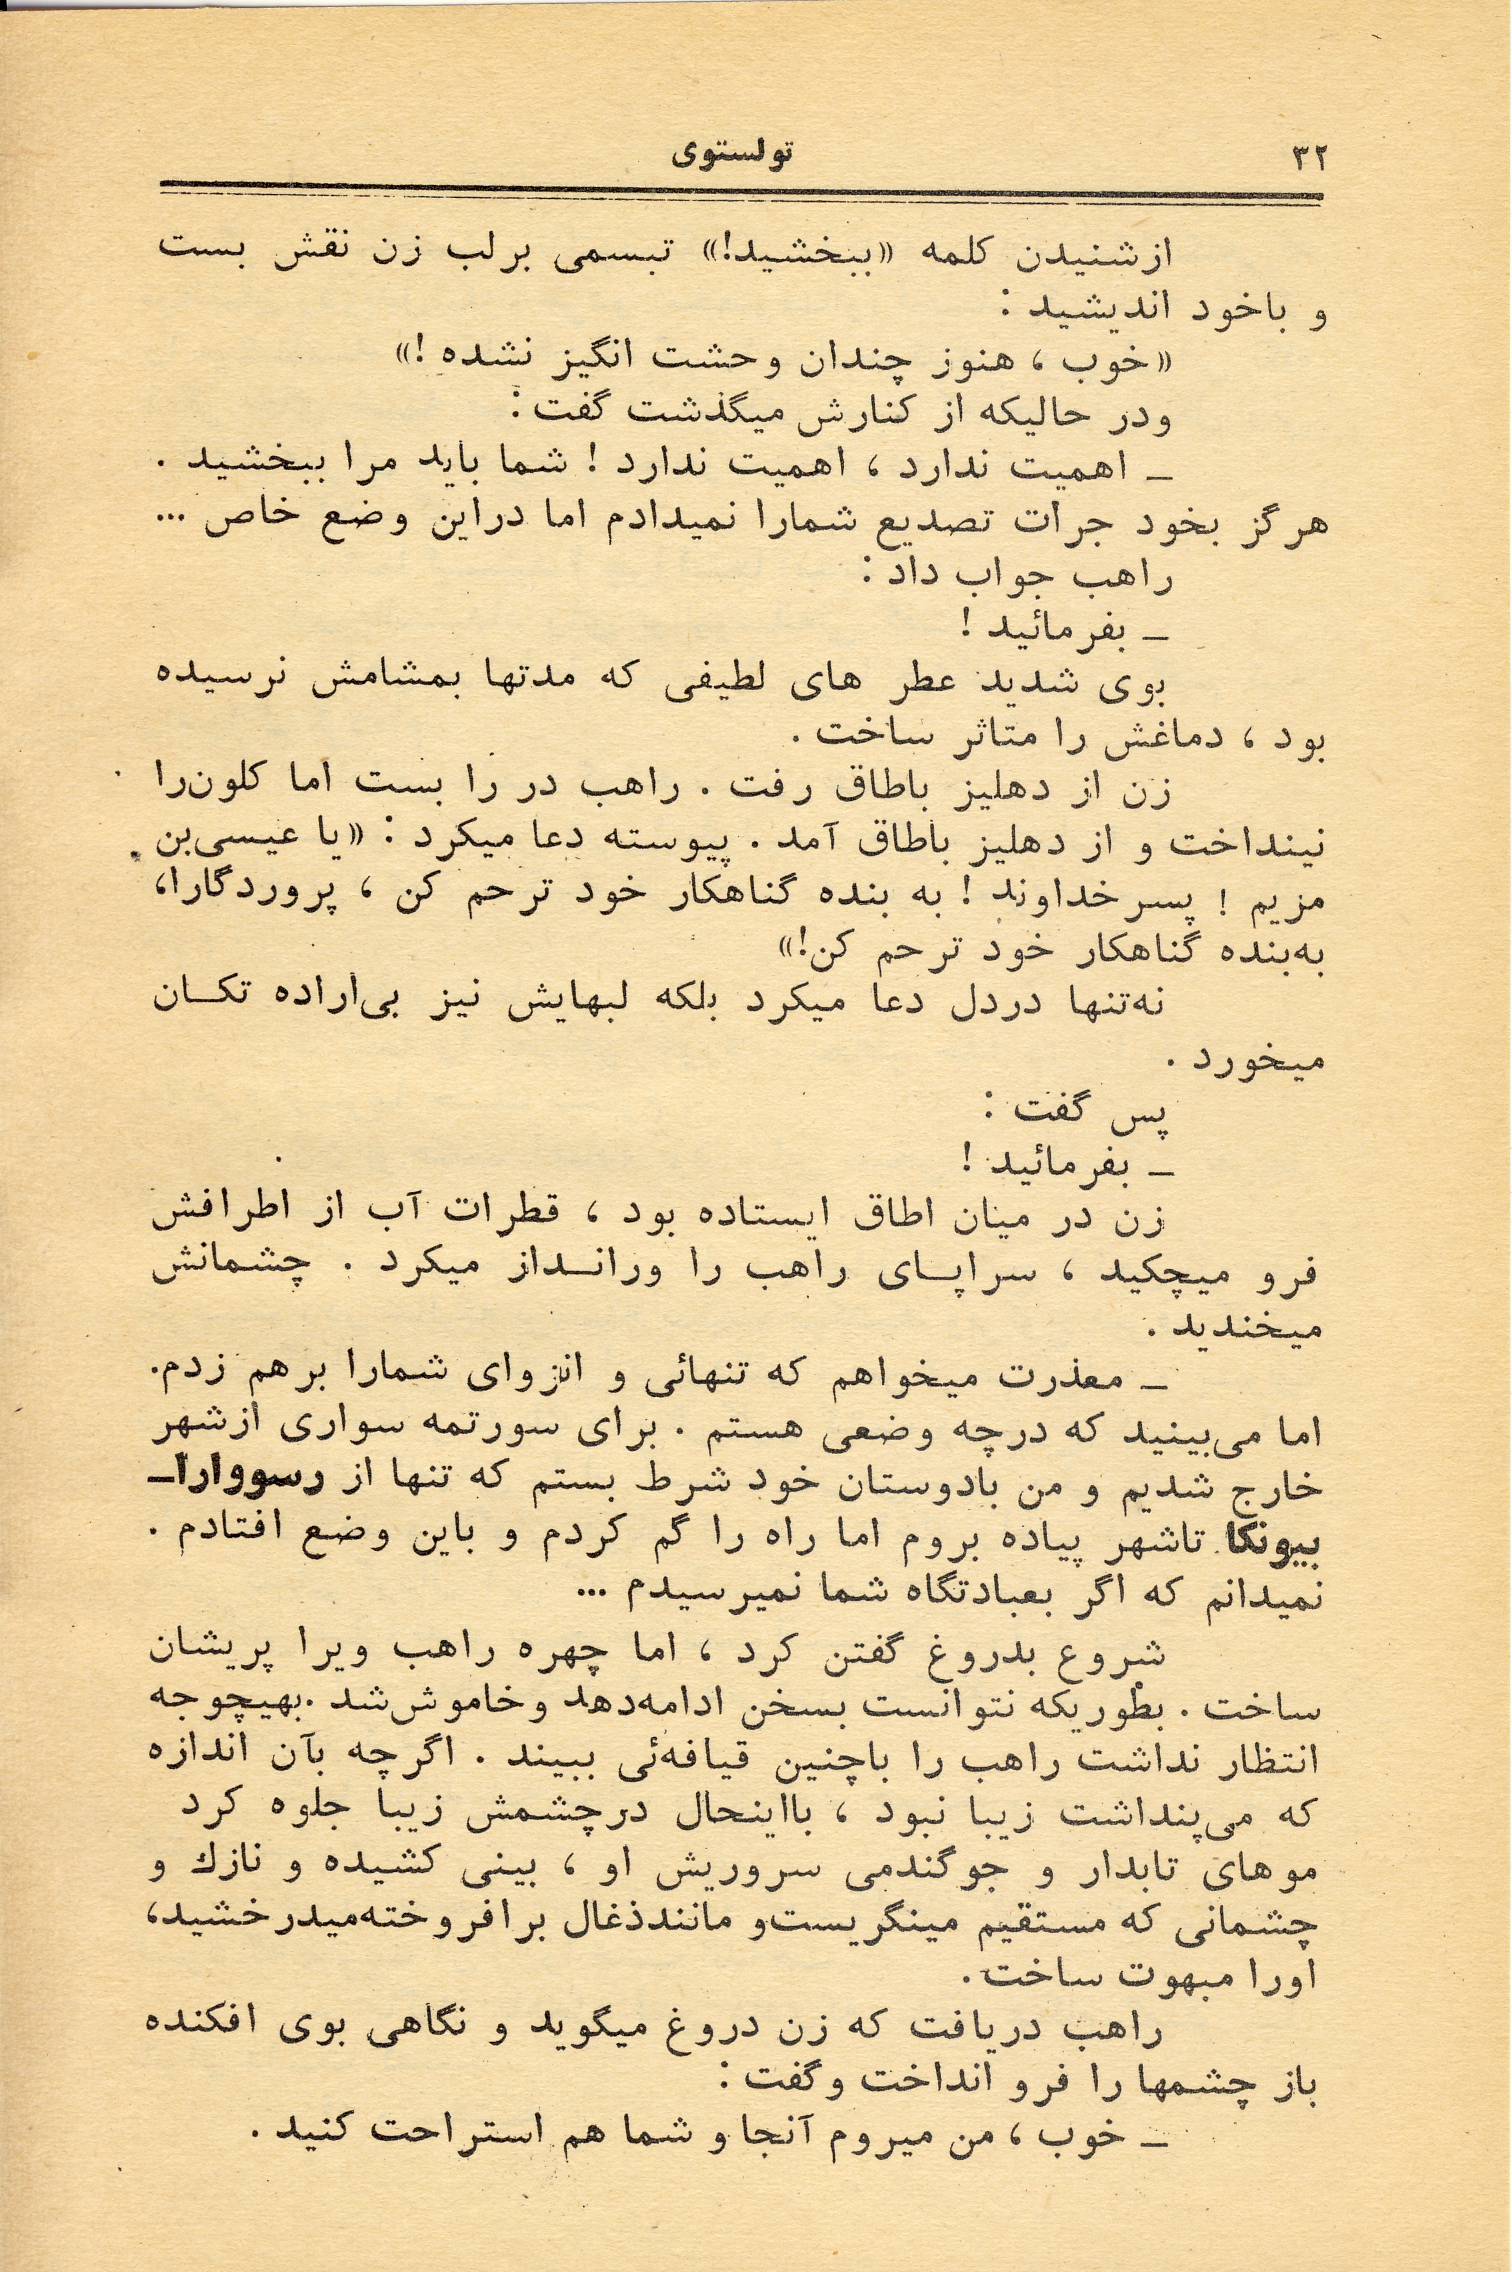 ۳۲
تولستوی
ازشنیدن کلمه «ببخشید!» تبسمی برلب زن نقش بست
و باخود اندیشید :
«خوب ، هنوز چندان وحشت انگیز نشده !»
ودر حالیکه از کنارش میگذشت گفت :
ـ اهمیت ندارد ، اهمیت ندارد ! شما باید مرا ببخشید .
هرگز بخود جرات تصدیع شمارا نمیدادم اما دراین وضع خاص ...
راهب جواب داد :
ـ بفرمائید !
بوی شدید عطر های لطیفی که مدتها بمشامش نرسیده
بود ، دماغش را متاثر ساخت .
زن از دهلیز باطاق رفت . راهب در را بست اما کلون‌را
نینداخت و از دهلیز باطاق آمد . پیوسته دعا میکرد : «یا عیسی‌بن
مزیم ! پسرخداوند ! به بنده گناهکار خود ترحم کن ، پروردگارا،
به‌بنده گناهکار خود ترحم کن!»
نه‌تنها دردل دعا میکرد بلکه لبهایش نیز بی‌اراده تکـان
میخورد .
پس گفت :
ـ بفرمائید !
زن در میان اطاق ایستاده بود ، قطرات آب از اطرافش
فرو میچکید ، سراپـای راهب را ورانـداز میکرد . چشمانش
میخندید .
ـ معذرت میخواهم که تنهائی و انزوای شمارا برهم زدم.
اما می‌بینید که درچه وضعی هستم . برای سورتمه سواری ازشهر
خارج شدیم و من بادوستان خود شرط بستم که تنها از رسووارا‌ـ
بیونکا تاشهر پیاده بروم اما راه را گم کردم و باین وضع افتادم .
نمیدانم که اگر بعبادتگاه شما نمیرسیدم ...
شروع بدروغ گفتن کرد ، اما چهره راهب ویرا پریشان
ساخت . بطوریکه نتوانست بسخن ادامه‌دهد وخاموش‌شد .بهیچوجه
انتظار نداشت راهب را باچنین قیافه‌ئی ببیند . اگرچه بآن اندازه
که می‌پنداشت زیبا نبود ، بااینحال درچشمش زیبا جلوه کرد
موهای تابدار و جوگندمی سروریش او ، بینی کشیده و نازك و
چشمانی که مستقیم مینگریست‌و مانندذغال برافروخته‌میدرخشید،
اورا مبهوت ساخت.
راهب دریافت که زن دروغ میگوید و نگاهی بوی افکنده
باز چشمها را فرو انداخت وگفت :
ـ خوب ، من میروم آنجا و شما هم استراحت کنید .